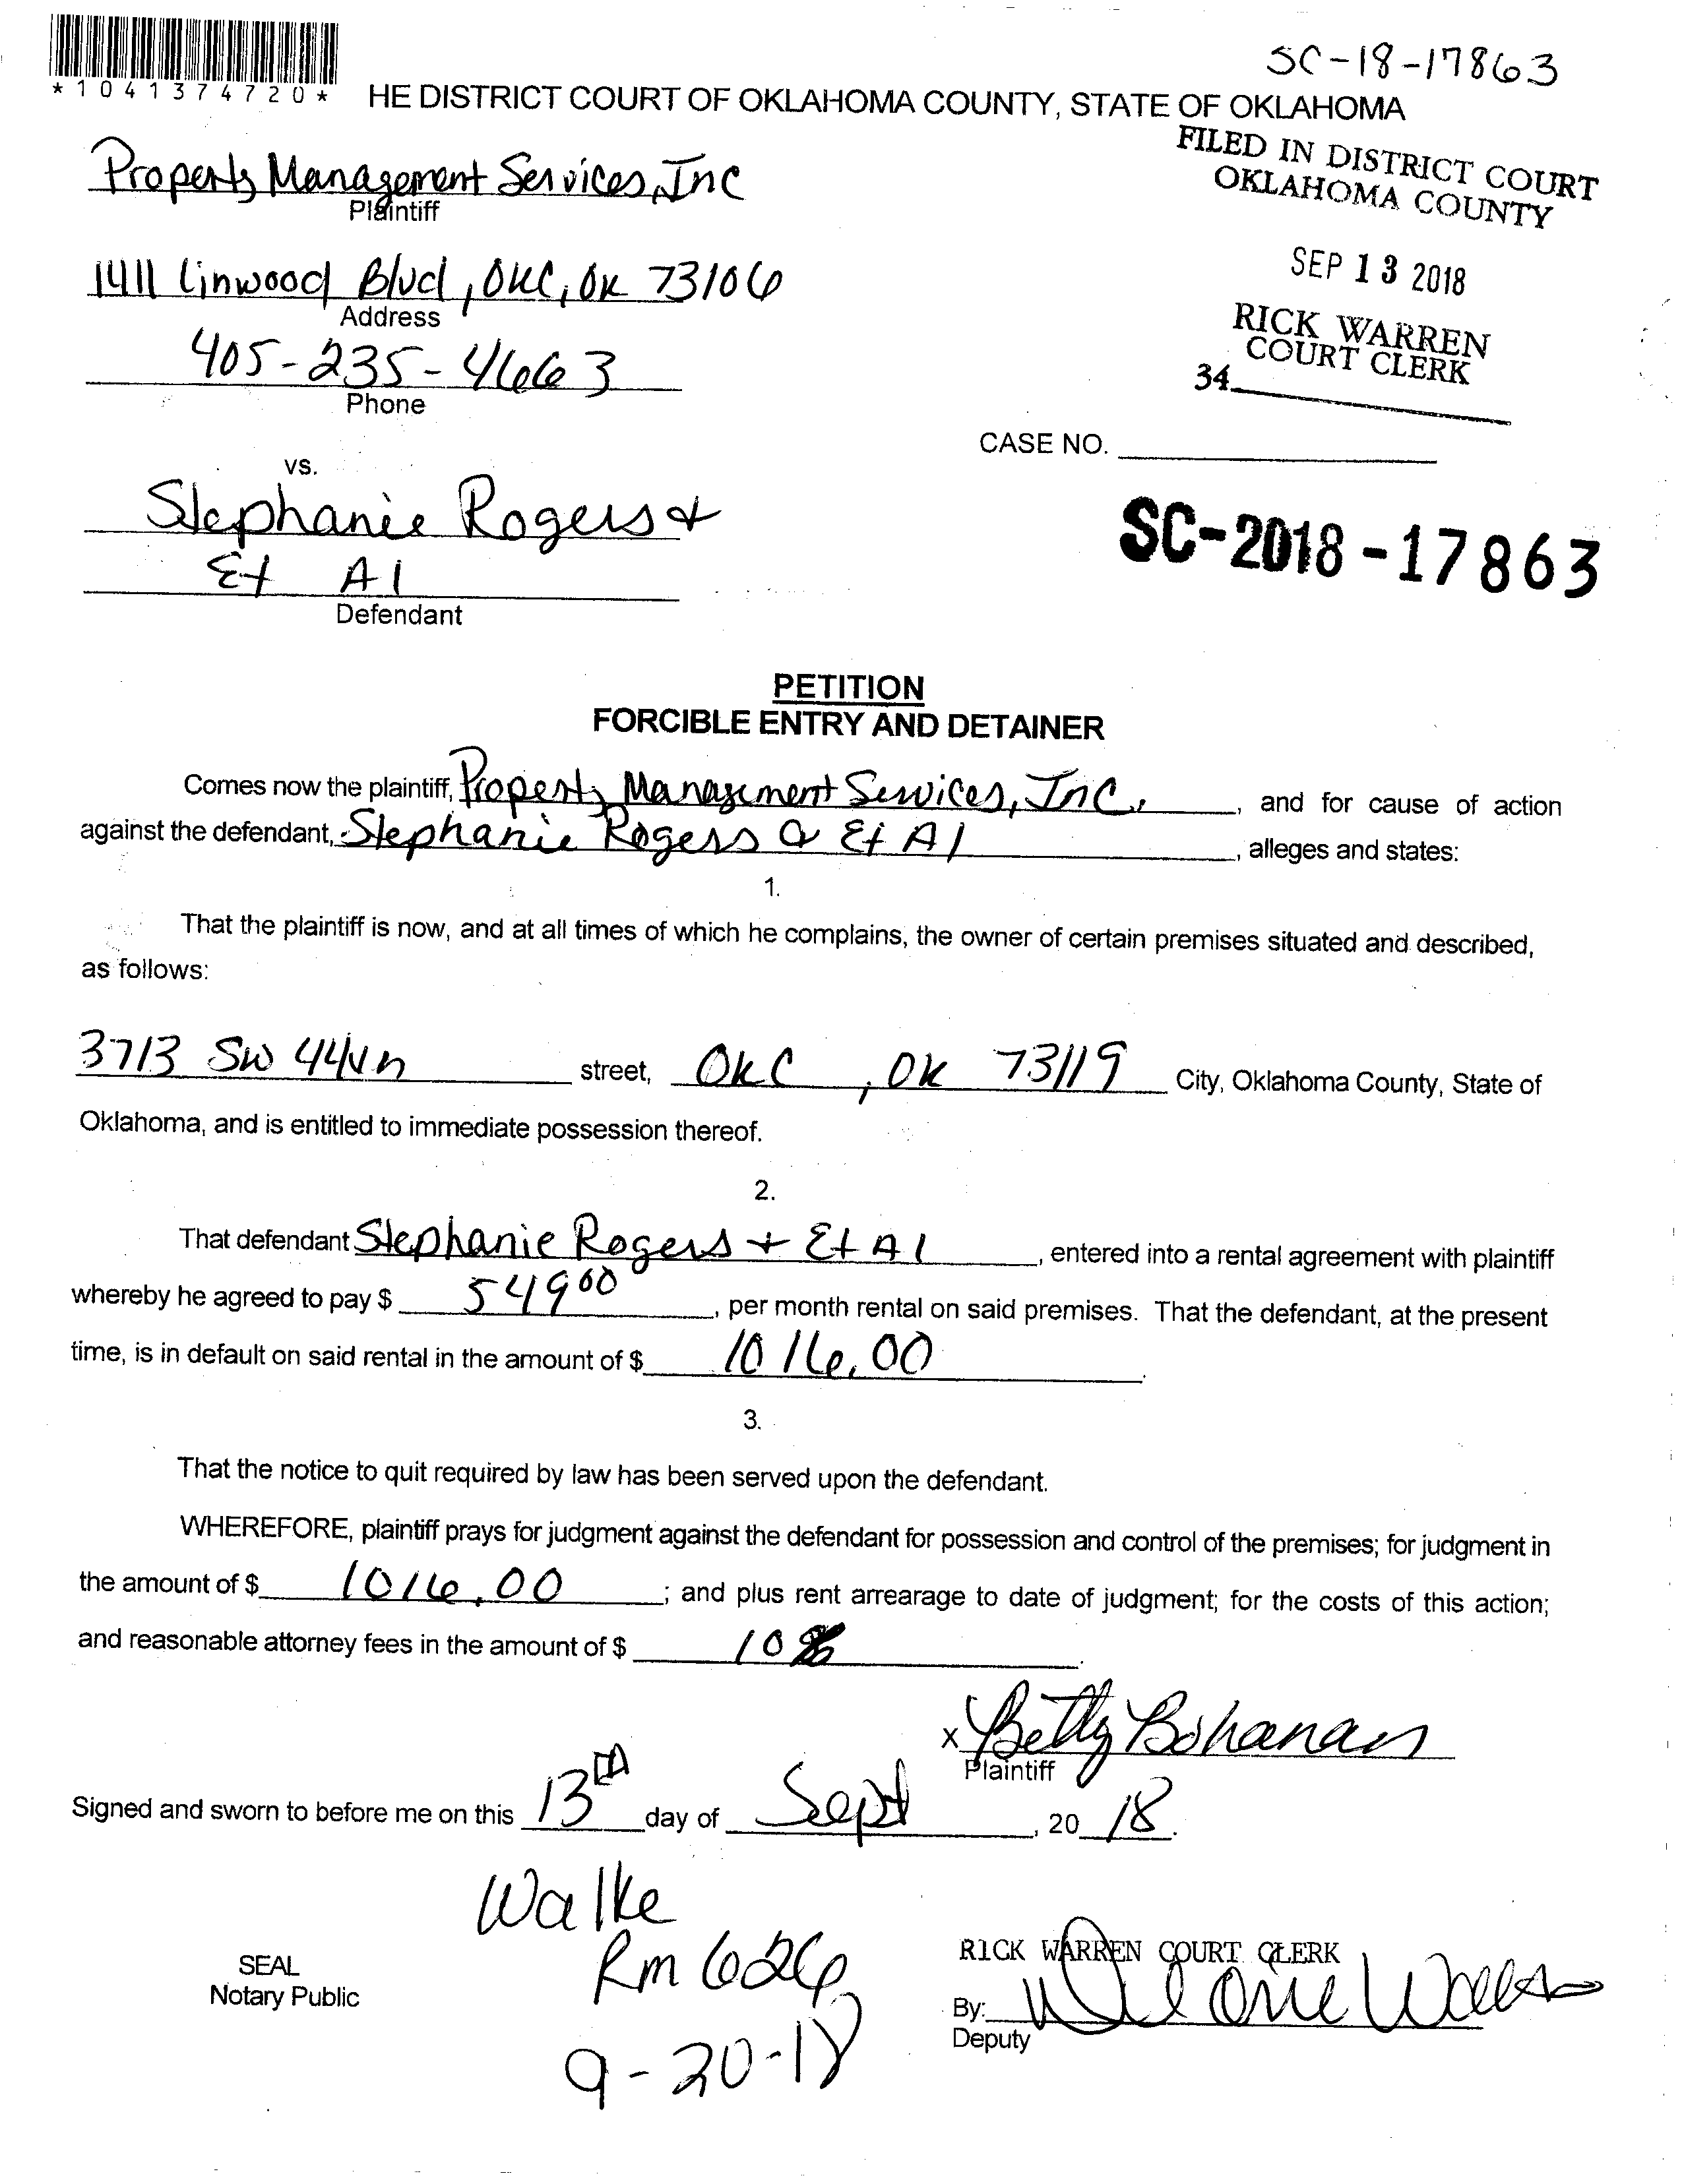 SC-18-17863
*1041374720*
HE DISTRICT COURT OF OKLAHOMA COUNTY, STATE OF OKLAHOMA
FILED IN DISTRICT COURT
OKLAHOMA COUNTY
Property Management Services, Inc
Plaintiff
SEP 13 2018
1411 Linwood Blvd, OKC, OK 73106
Address
RICK WARREN
COURT CLERK
405-235-4663
34
Phone
CASE NO.
vs.
Stephanie Rogers &
SC-2018-17863
Et Al
Defendant
PETITION
FORCIBLE ENTRY AND DETAINER
Comes now the plaintiff, Property Management Services, Inc., and for cause of action
against the defendant, Stephanie Rogers & Et Al, alleges and states:
1.
That the plaintiff is now, and at all times of which he complains, the owner of certain premises situated and described,
as follows:
3713 SW 44 street, OKC, OK 73119 City, Oklahoma County, State of
Oklahoma, and is entitled to immediate possession thereof.
2.
That defendant Stephanie Rogers + Et Al, entered into a rental agreement with plaintiff
whereby he agreed to pay $ 549 00, per month rental on said premises. That the defendant, at the present
time, is in default on said rental in the amount of $ 1016.00.
3.
That the notice to quit required by law has been served upon the defendant.
WHEREFORE, plaintiff prays for judgment against the defendant for possession and control of the premises; for judgment in
the amount of $ 1016.00; and plus rent arrearage to date of judgment; for the costs of this action;
and reasonable attorney fees in the amount of $ 10%.
x Betty Bohanan
Plaintiff
Signed and sworn to before me on this 13th day of Sept, 20 18.
Walke
Rm 626
RICK WARREN COURT CLERK
SEAL
Notary Public
By:
Deputy
9-20-18